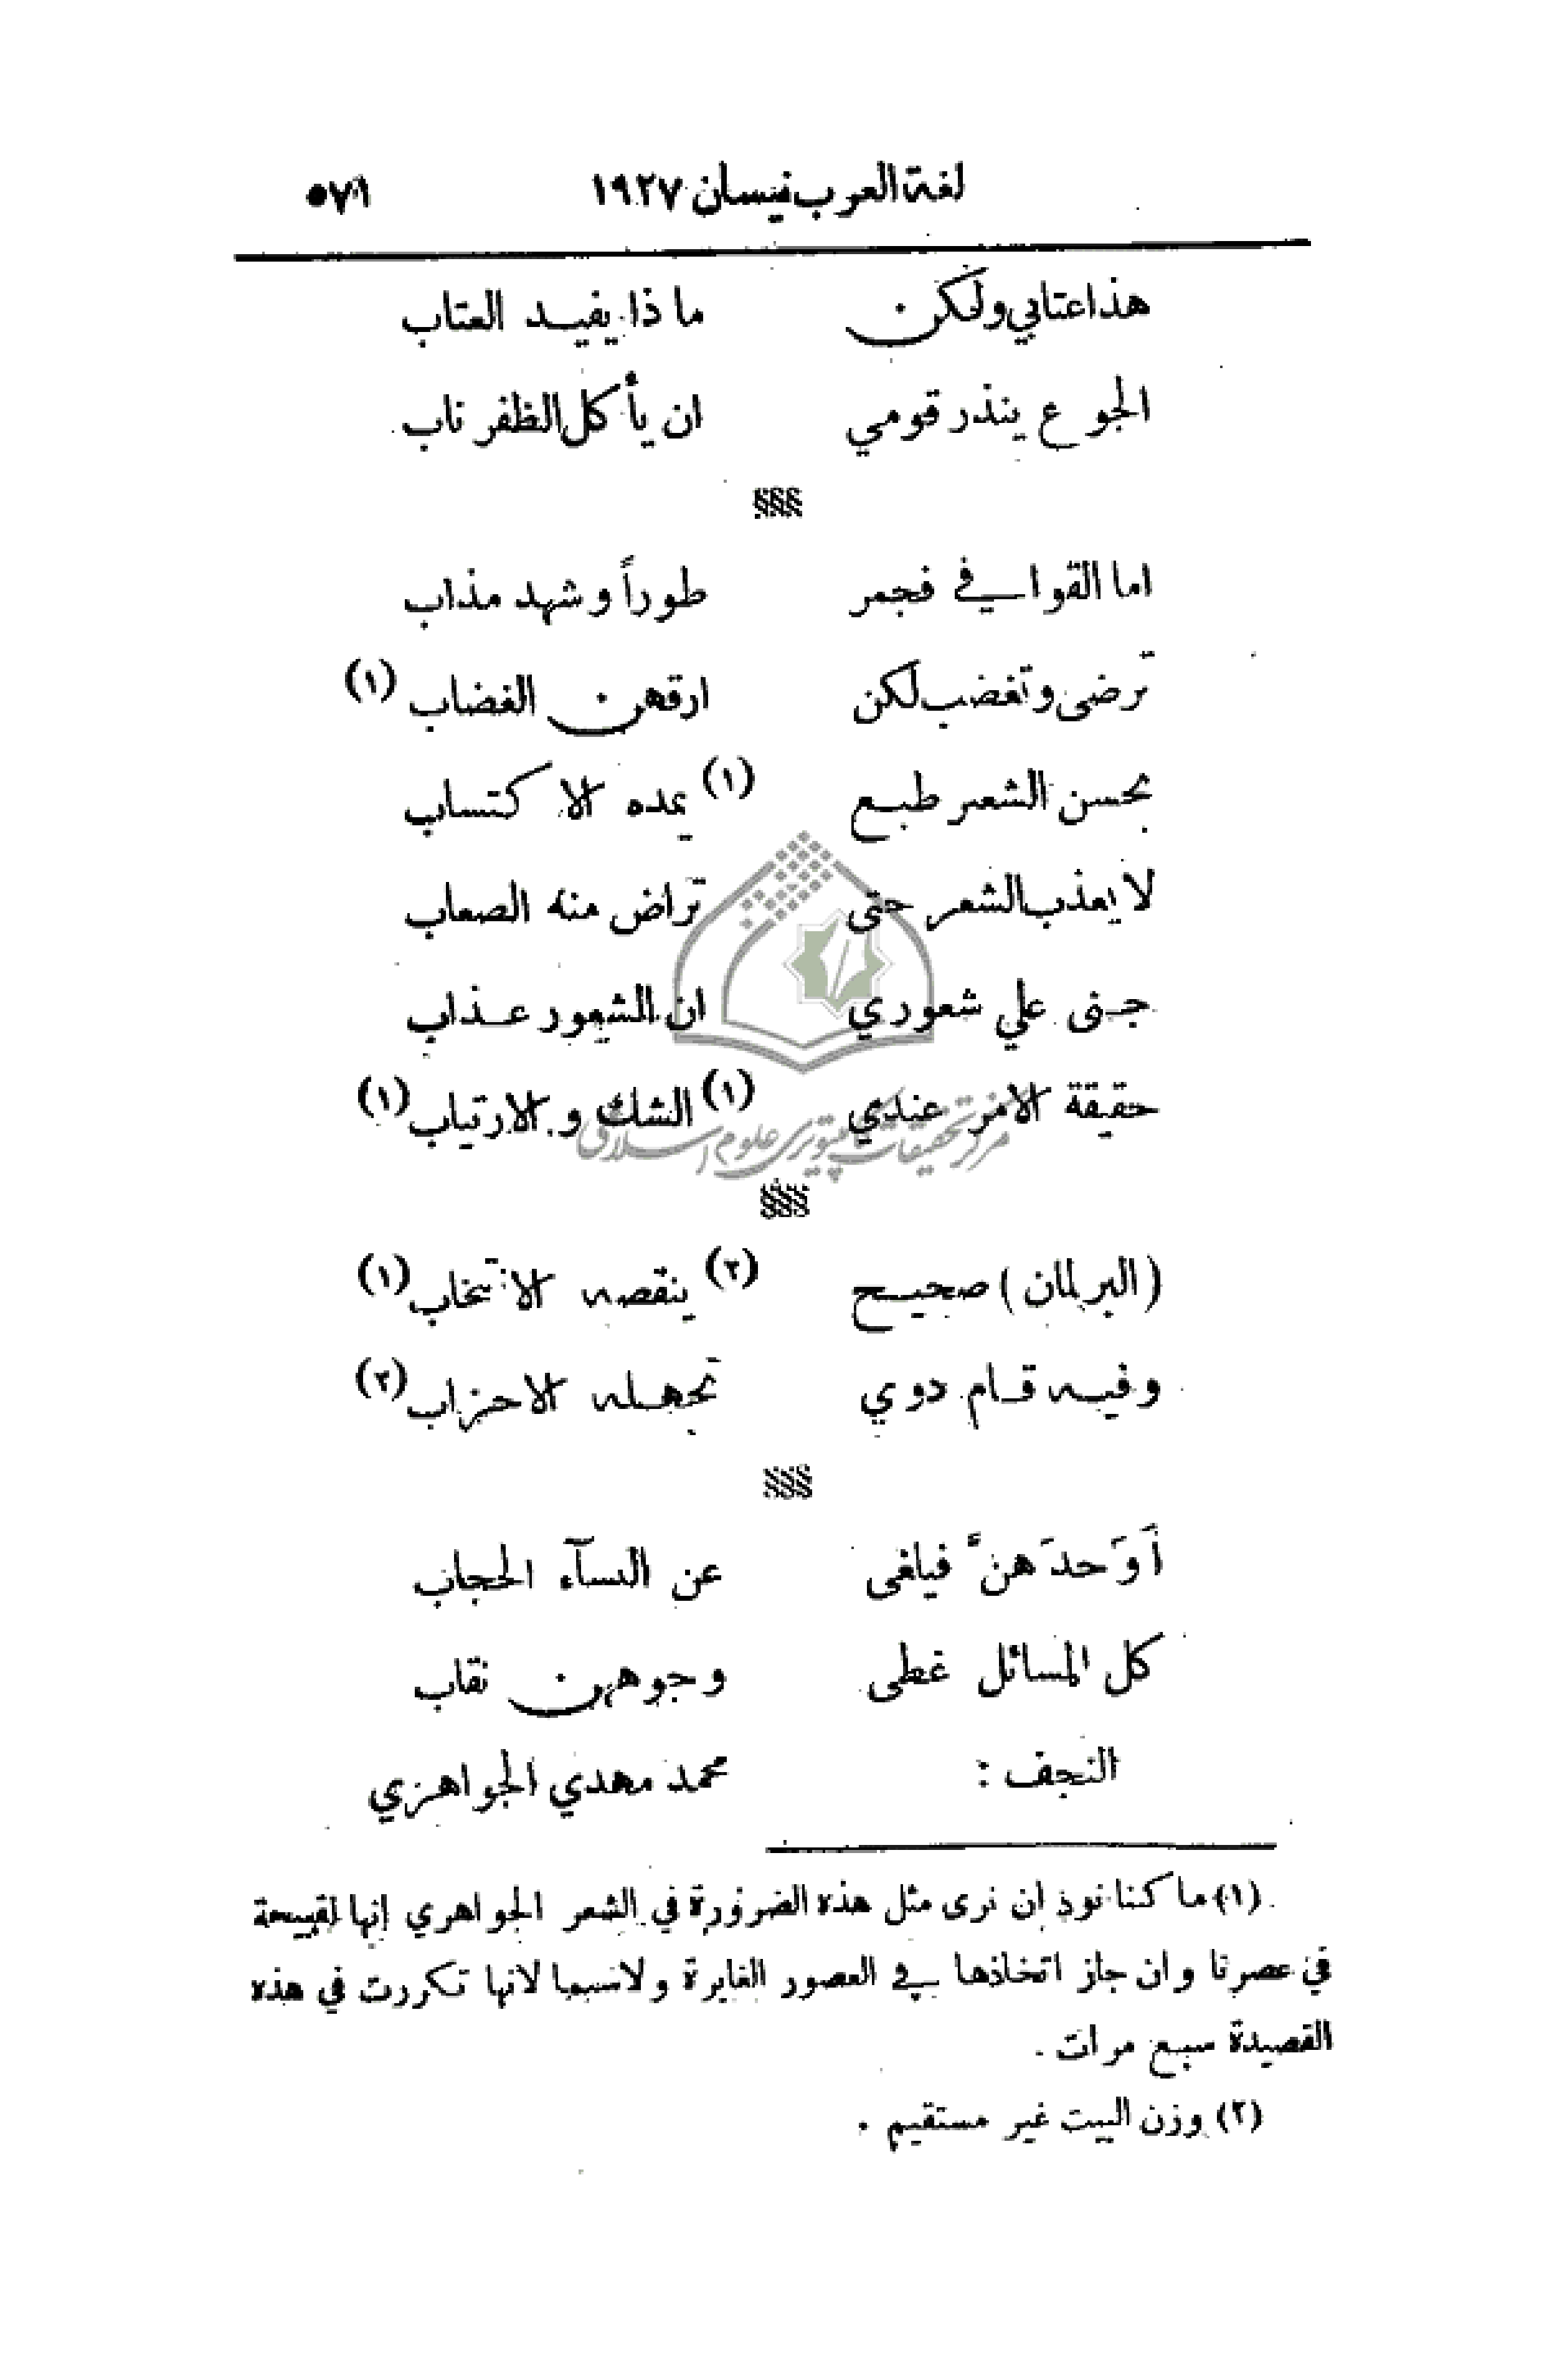 لغة العرب نيسان ١٩٢٧ ٥٧١
هذا عتابي ولكن ما ذا يفيد العتاب
الجوع ينذر قومي ان يأكل الظفر ناب
§§§
اما القوافي فجمر طوراً وشهد مذاب
ترضى وتغضب لكن ارقهن الغضاب (١)
يحسن الشعر طبع (١) يمده الاكتساب
لا يعذب الشعر حتى تراض منه الصعاب
جنى علي شعوري ان الشعور عذاب
حقيقة الامر عندي (١) الشك والارتياب (١)
مركز تحقيقات كامپيوتری علوم اسلامی
§§§
(البرلمان) صحيح (٢) ينقصه الانتخاب (١)
وفيه قام دوي تجهله الاحزاب (٢)
§§§
أَوَحدَهنَّ فيلغى عن النسآء الحجاب
كل المسائل غطى وجوههن نقاب
النجف : محمد مهدي الجواهري
(١) ما كنا نود ان نرى مثل هذه الضرورة في الشعر الجواهري إنها لقبيحة
في عصرنا وان جاز اتخاذها في العصور الغابرة ولاسيما لانها تكررت في هذه
القصيدة سبع مرات .
(٢) وزن البيت غير مستقيم .